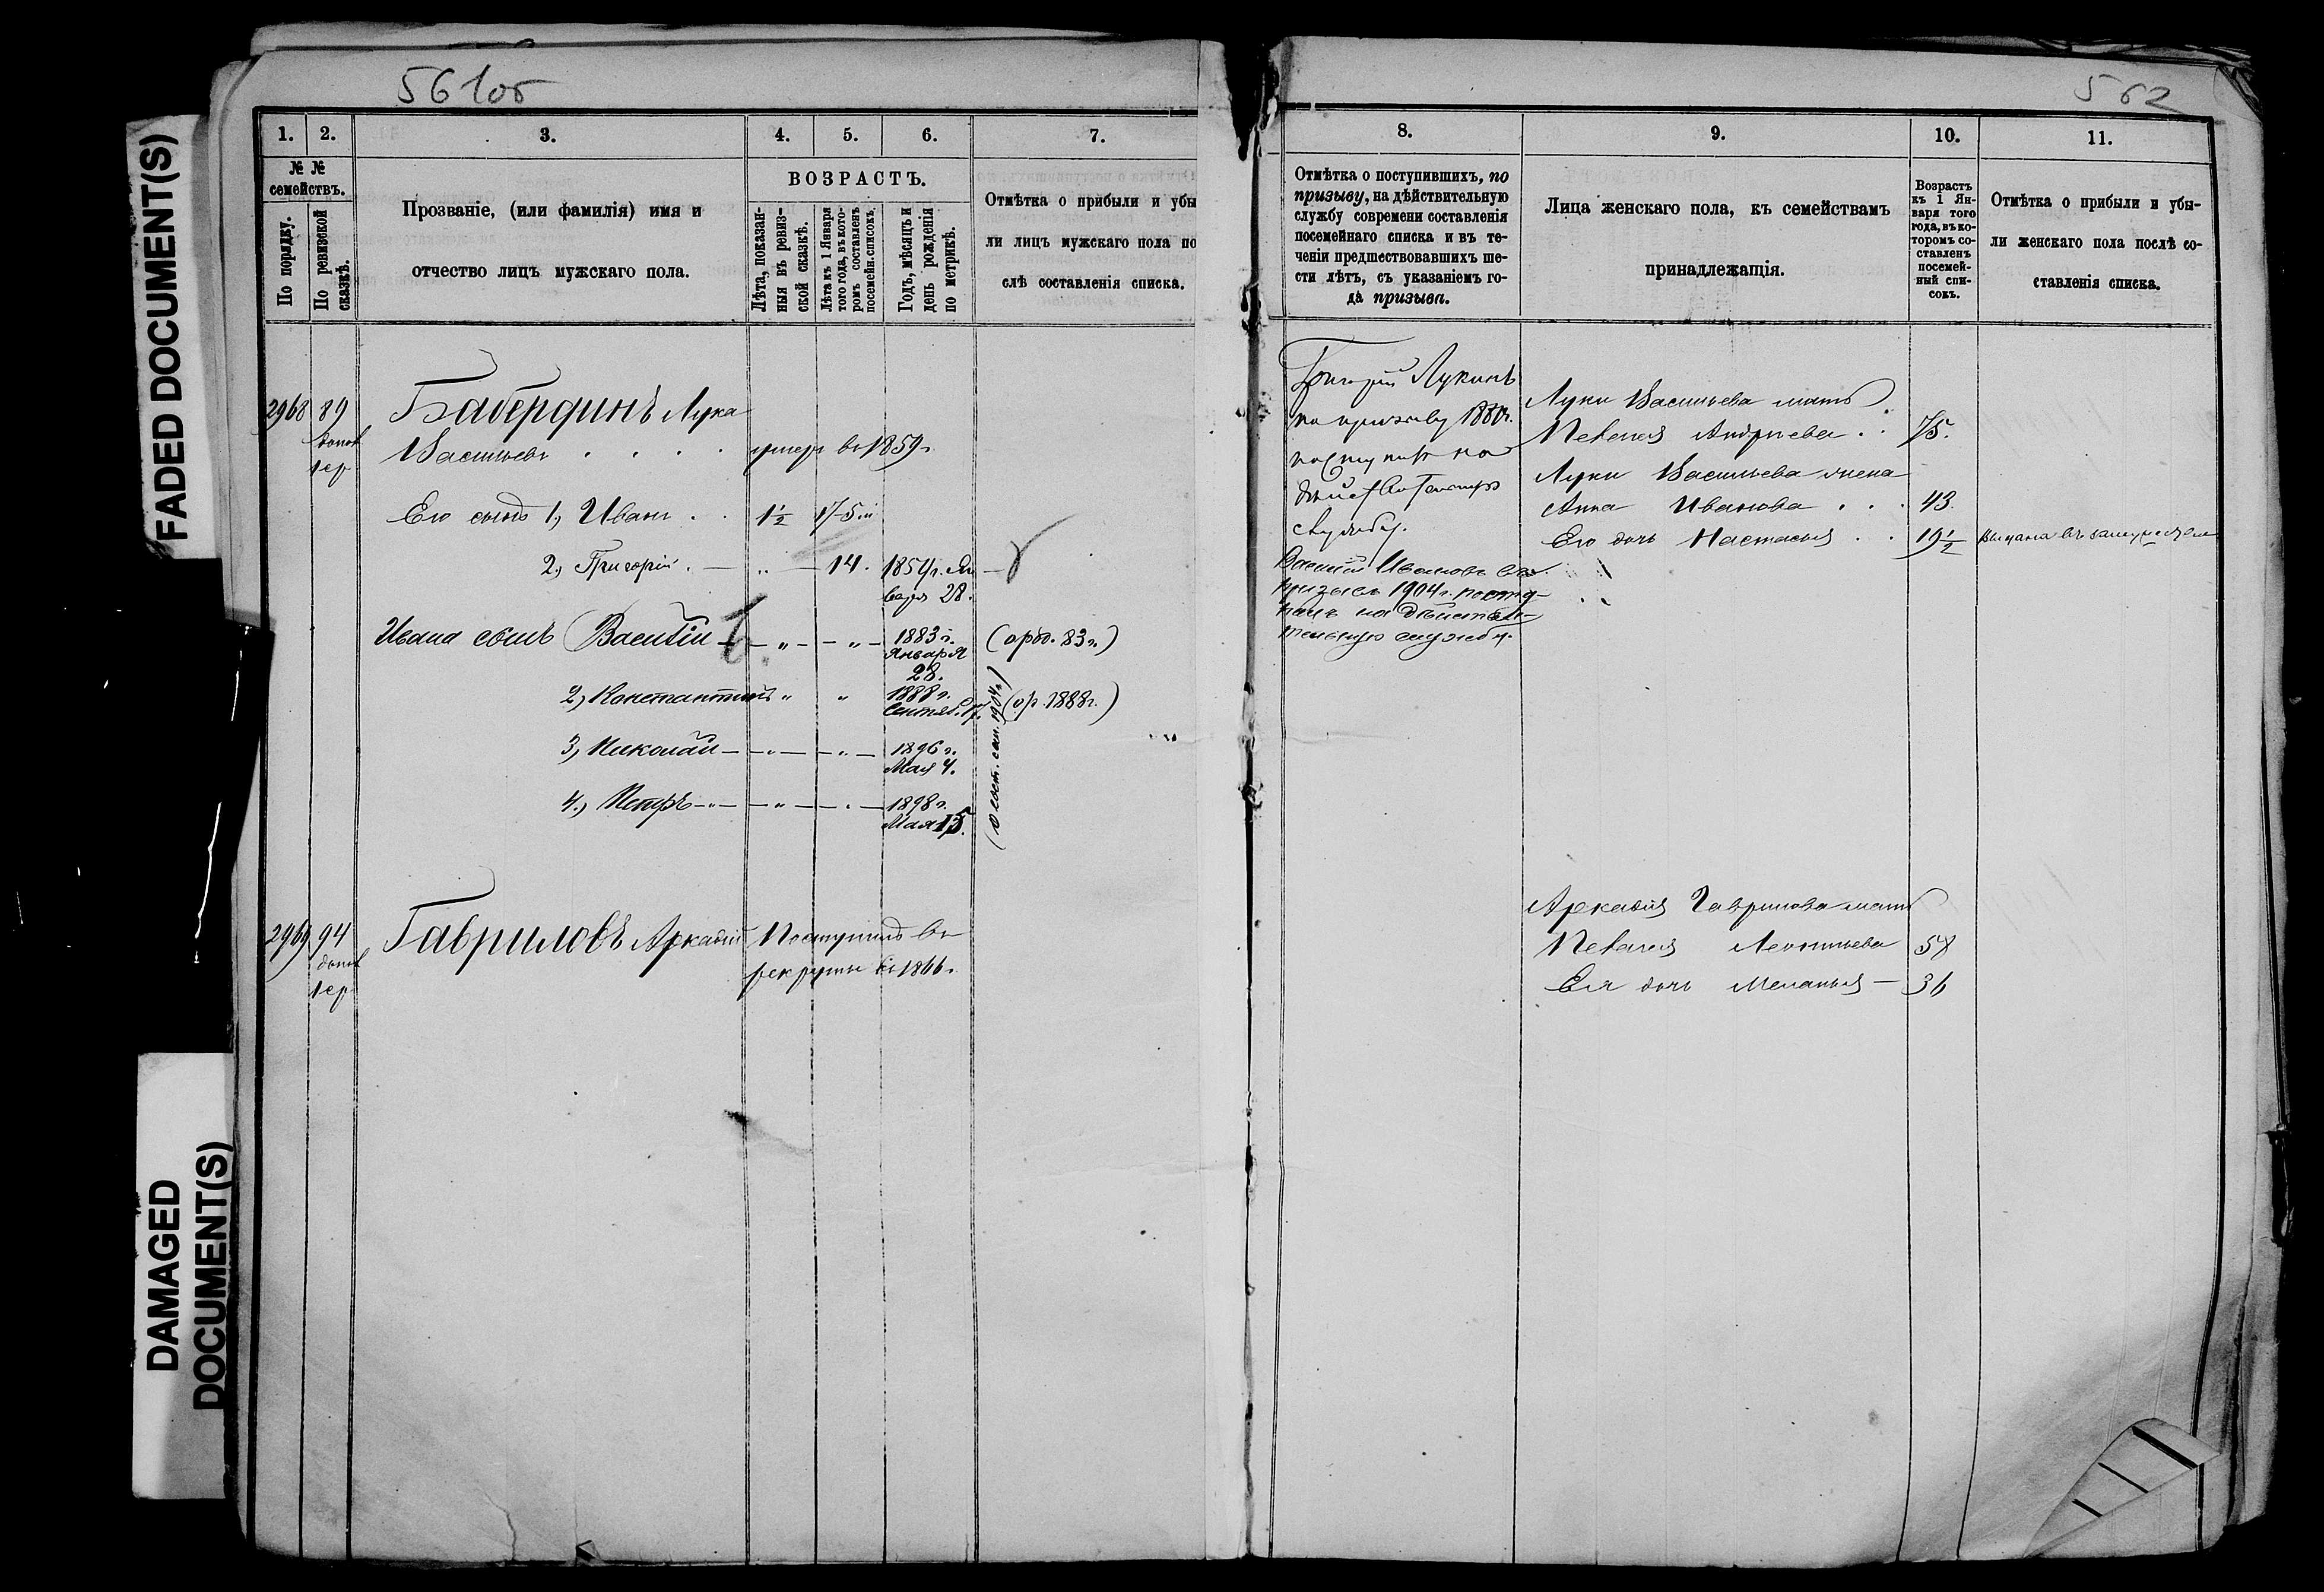 FADED DOCUMENT(S)
DAMAGED
DOCUMENT(S)
561об
1. 2. 3. 4. 5. 6. 7.
№ №
семействъ.
По порядку.
По ревизской
сказкѣ.
Прозваніе, (или фамилія) имя и
отчество лицъ мужскаго пола.
ВОЗРАСТЪ.
Лѣта, показан-
ныя въ ревиз-
ской сказкѣ.
Лѣта къ 1 Января
того года, въ кото-
ромъ составленъ
посемейн. списокъ.
Годъ, мѣсяцъ и
день рожденія
по метрикѣ.
Отмѣтка о прибыли и убы
ли лицъ мужскаго пола по
слѣ составленія списка.
2968 89 Бабердинъ Лука
допол
1 ер
Васильевъ . . . . умеръ въ 1859г.
Его сынъ 1, Иванъ . . 1½ 17
2, Григорій . — „ — 14. 1857г. Ян
варя 28.
Ивана сынъ Василій — „ — „ — 1883г. (оро. 83г.)
Января
28.
2, Константинъ „ „ 1888г. (ор. 1888г.)
Сентяб. 17.
3, Николай — „ — „ — 1896г.
Мая 4.
4, Петръ — „ — „ — 1898г.
Мая 15.
2969 94 Гавриловъ Аркадій Поступилъ въ
допол
1 ер
рекруты въ 1866г.
562
8. 9. 10. 11.
Отмѣтка о поступившихъ, по
призыву, на дѣйствительную
службу современи составленія
посемейнаго списка и въ те-
ченіи предшествовавшихъ ше-
сти лѣтъ, съ указаніемъ го-
да призыва.
Лица женскаго пола, къ семействамъ
принадлежащія.
Возрастъ
къ 1 Ян-
варя того
года, въ ко-
торомъ со-
ставленъ
посемей-
ный спи-
сокъ.
Отмѣтка о прибыли и убы-
ли женскаго пола послѣ со-
ставленія списка.
Григорій Лукинъ
по призыву 1880г.
поступилъ на
службу.
Василій Ивановъ въ
призывъ 1904г. посту-
пилъ на дѣйстви-
тельную службу.
Луки Васильева мать
Пелагея Андреева . . 75.
Луки Васильева жена
Анна Иванова . . . 43.
Его дочь Настасья . . 19½ выдана въ замужество
Аркадія Гаврилова мать
Пелагея Леонтьева 58
Ея дочь Меланья — 36